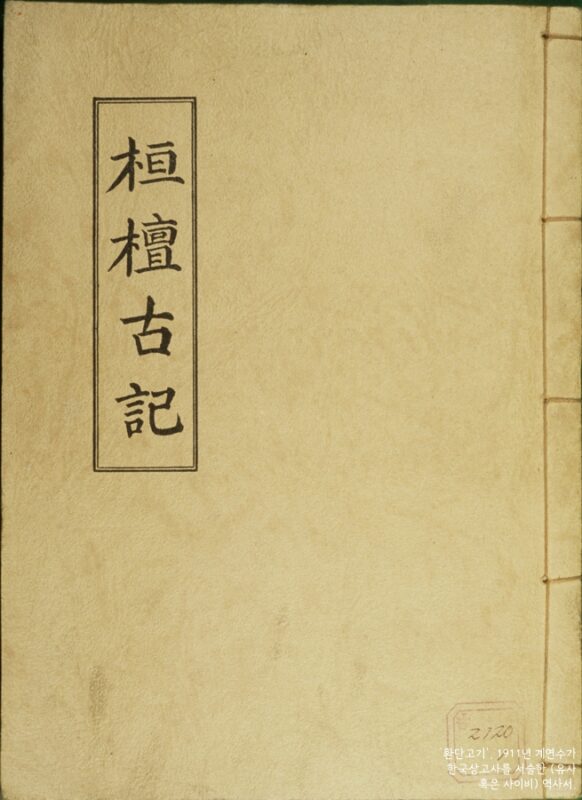 桓檀古記
2120
환단고기'. 1911년 계연수가
한국상고사를 서술한 (유사
혹은 사이비) 역사서